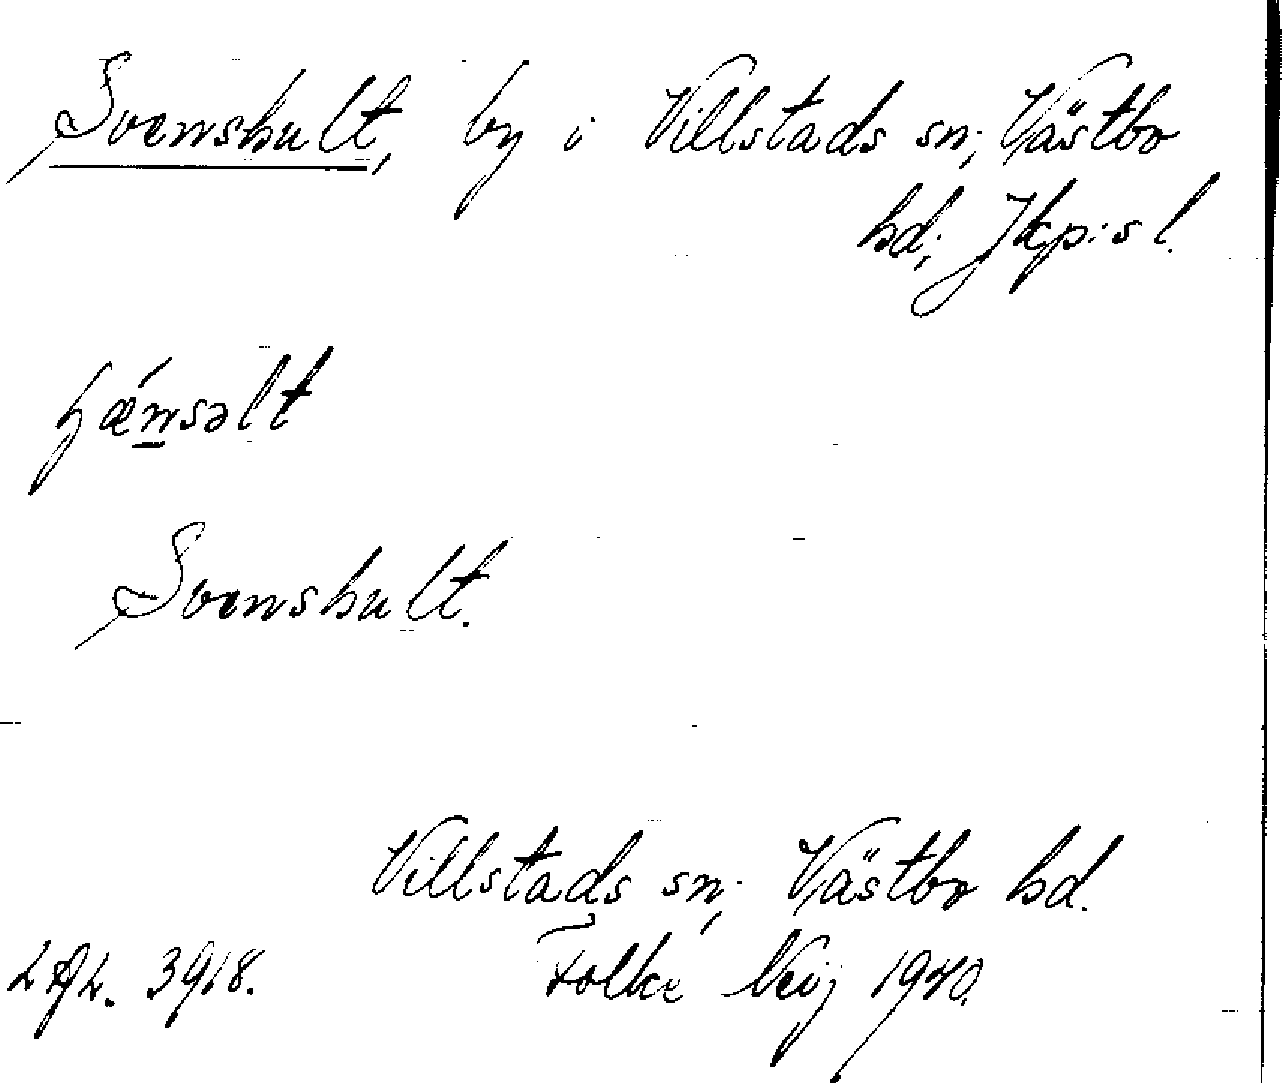 Svenshult, by i Villstads sn, Västbo
hd, Jkp:s l.
Svenshult.
Villstads sn, Västbo hd.
3918. Folke 1940.